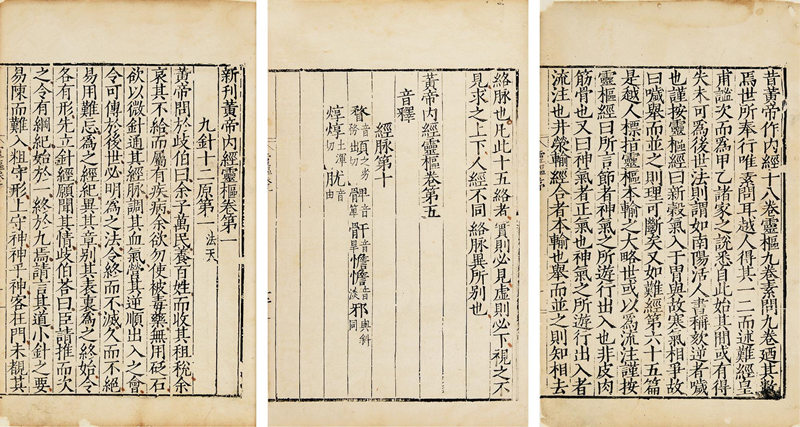 昔黃帝作內經十八卷靈樞九卷素問九卷廼其數
焉世所奉行唯素問耳越人得其一二而述難經皇
甫謐次而為甲乙諸家之說悉自此始其間或有得
失未可為後世法則謂如南陽活人書稱欬逆者噦
也謹按靈樞經曰新穀氣入于胃與故寒氣相爭故
曰噦舉而並之則理可斷矣又如難經第六十五篇
是越人標指靈樞本輸之大略世或以為流注謹按
靈樞經曰所言節者神氣之所遊行出入也非皮肉
筋骨也又曰神氣者正氣也神氣之所遊行出入者
流注也井滎輸經合者本輸也舉而並之則知相去
絡脉也凡此十五絡者實則必見虛則必下視之不
見求之上下人經不同絡脉異所別也
黃帝內經靈樞卷第五
音釋
經脉第十
瞀 䪼 髀音箅 骭音旱 憺憺音淡 邪音與斜同
焞焞土渾切 胧音由
新刊黃帝內經靈樞卷第一
九針十二原第一 法天
黃帝問於歧伯曰余子萬民養百姓而收其租稅余
哀其不給而屬有疾病余欲勿使被毒藥無用砭石
欲以微針通其經脉調其血氣營其逆順出入之會
令可傳於後世必明為之法令終而不滅久而不絕
易用難忘為之經紀異其章別其表裏為之終始令
各有形先立針經願聞其情歧伯荅曰臣請推而次
之令有綱紀始於一終於九焉請言其道小針之要
易陳而難入粗守形上守神神乎神客在門未覩其